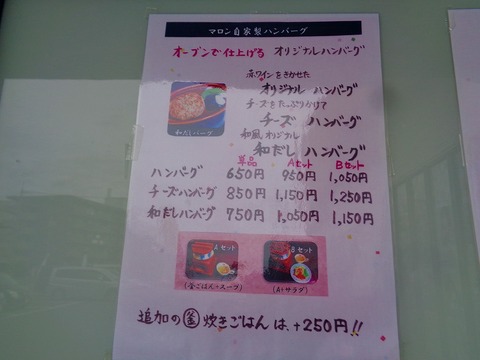 マロン自家製ハンバーグ
オーブンで仕上げる オリジナルハンバーグ
赤ワインをきかせた
オリジナル ハンバーグ
チーズをたっぷりかけて
チーズ ハンバーグ
和風オリジナル
和だし ハンバーグ
和だしバーグ
単品 Aセット Bセット
ハンバーグ 650円 950円 1,050円
チーズハンバーグ 850円 1,150円 1,250円
和だしハンバーグ 750円 1,050円 1,150円
Aセット
Bセット
(釜ごはん+スープ)
(A+サラダ)
追加の釜炊きごはんは、+250円!!